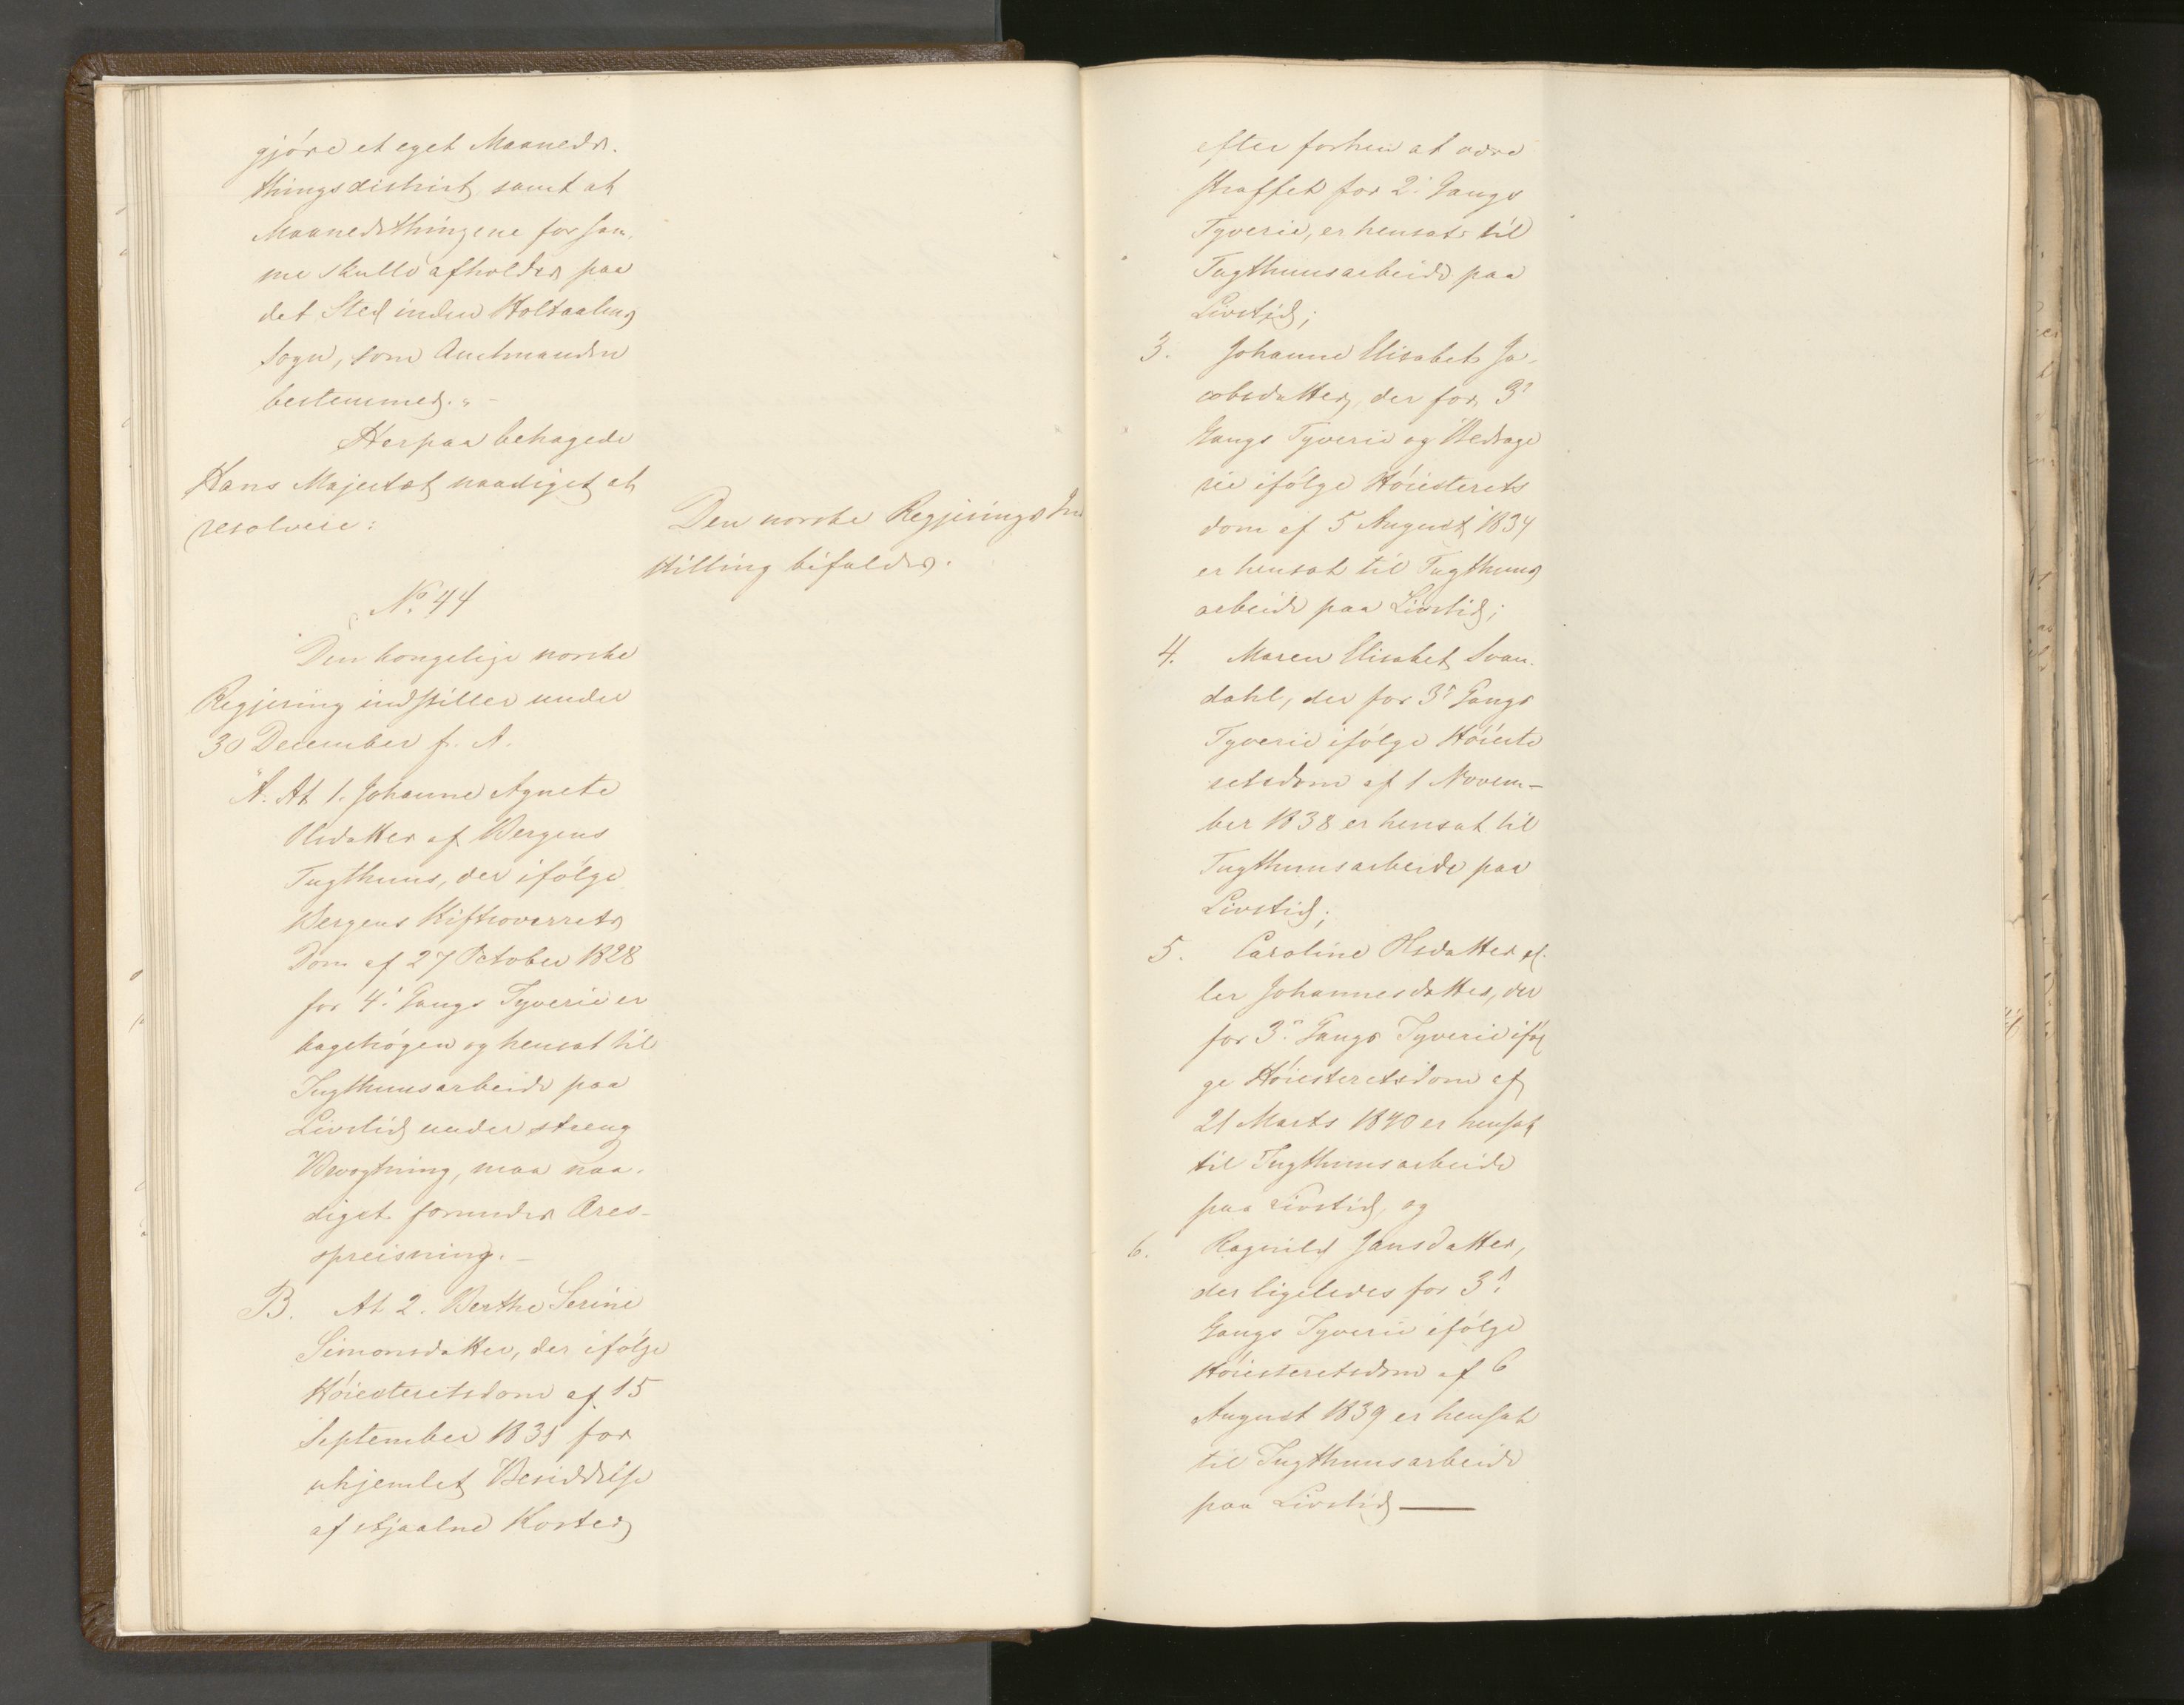 gjöre et eget Maaneds-
thingsdistrict, samt at
Maanedsthingene for sam-
me skulle afholdes paa
det Sted inden Holtaalens
Sogn, som Amtmanden
bestemmer." -
Herpaa behagede
Hans Majestæt naadigst at
resolvere:
Den norske Regjerings Ind
stilling bifaldes.
No 44
Den kongelige norske
Regjering indstiller under
30 December f. A.
"A. At 1. Johanne Agnete
Olsdatter af Bergens
Tugthuus, der ifölge
Bergens Stiftsoverrets
Dom af 27 October 1828
for 4de Gangs Tyverie er
kagströgen og hensat til
Tugthuusarbeide paa
Livstid under streng
Bevogtning, maa naa-
digst forundes Æres-
opreisning. -
B. At 2. Berthe Serine
Simonsdatter, der ifölge
Höiesteretsdom af 15
September 1835 for
uhjemlet Besiddelse
af stjaalne Koster,
efter forhen at være
straffet for 2. Gangs
Tyverie, er hensat til
Tugthuusarbeide paa
Livstid;
3. Johanne Elisabet Ja-
cobsdatter, der for 3die
Gangs Tyverie og Bedrage
rie ifölge Höiesterets
dom af 5 August 1834
er hensat til Tugthuus
arbeide paa Livstid;
4. Maren Elisabet Svan-
dahl, der for 3die Gangs
Tyverie ifölge Höieste
retsdom af 1 Novem-
ber 1838 er hensat til
Tugthuusarbeide paa
Livstid;
5. Caroline Olsdatter el-
ler Johannesdatter, der
for 3die Gangs Tyverie iföl
ge Höiesteretsdom af
21 Marts 1840 er hensat
til Tugthuusarbeide
paa Livstid, og
6. Ragnild Jansdatter,
der ligeledes for 3die
Gangs Tyverie ifölge
Höiesteretsdom af 6
August 1839 er hensat
til Tugthuusarbeide
paa Livstid —